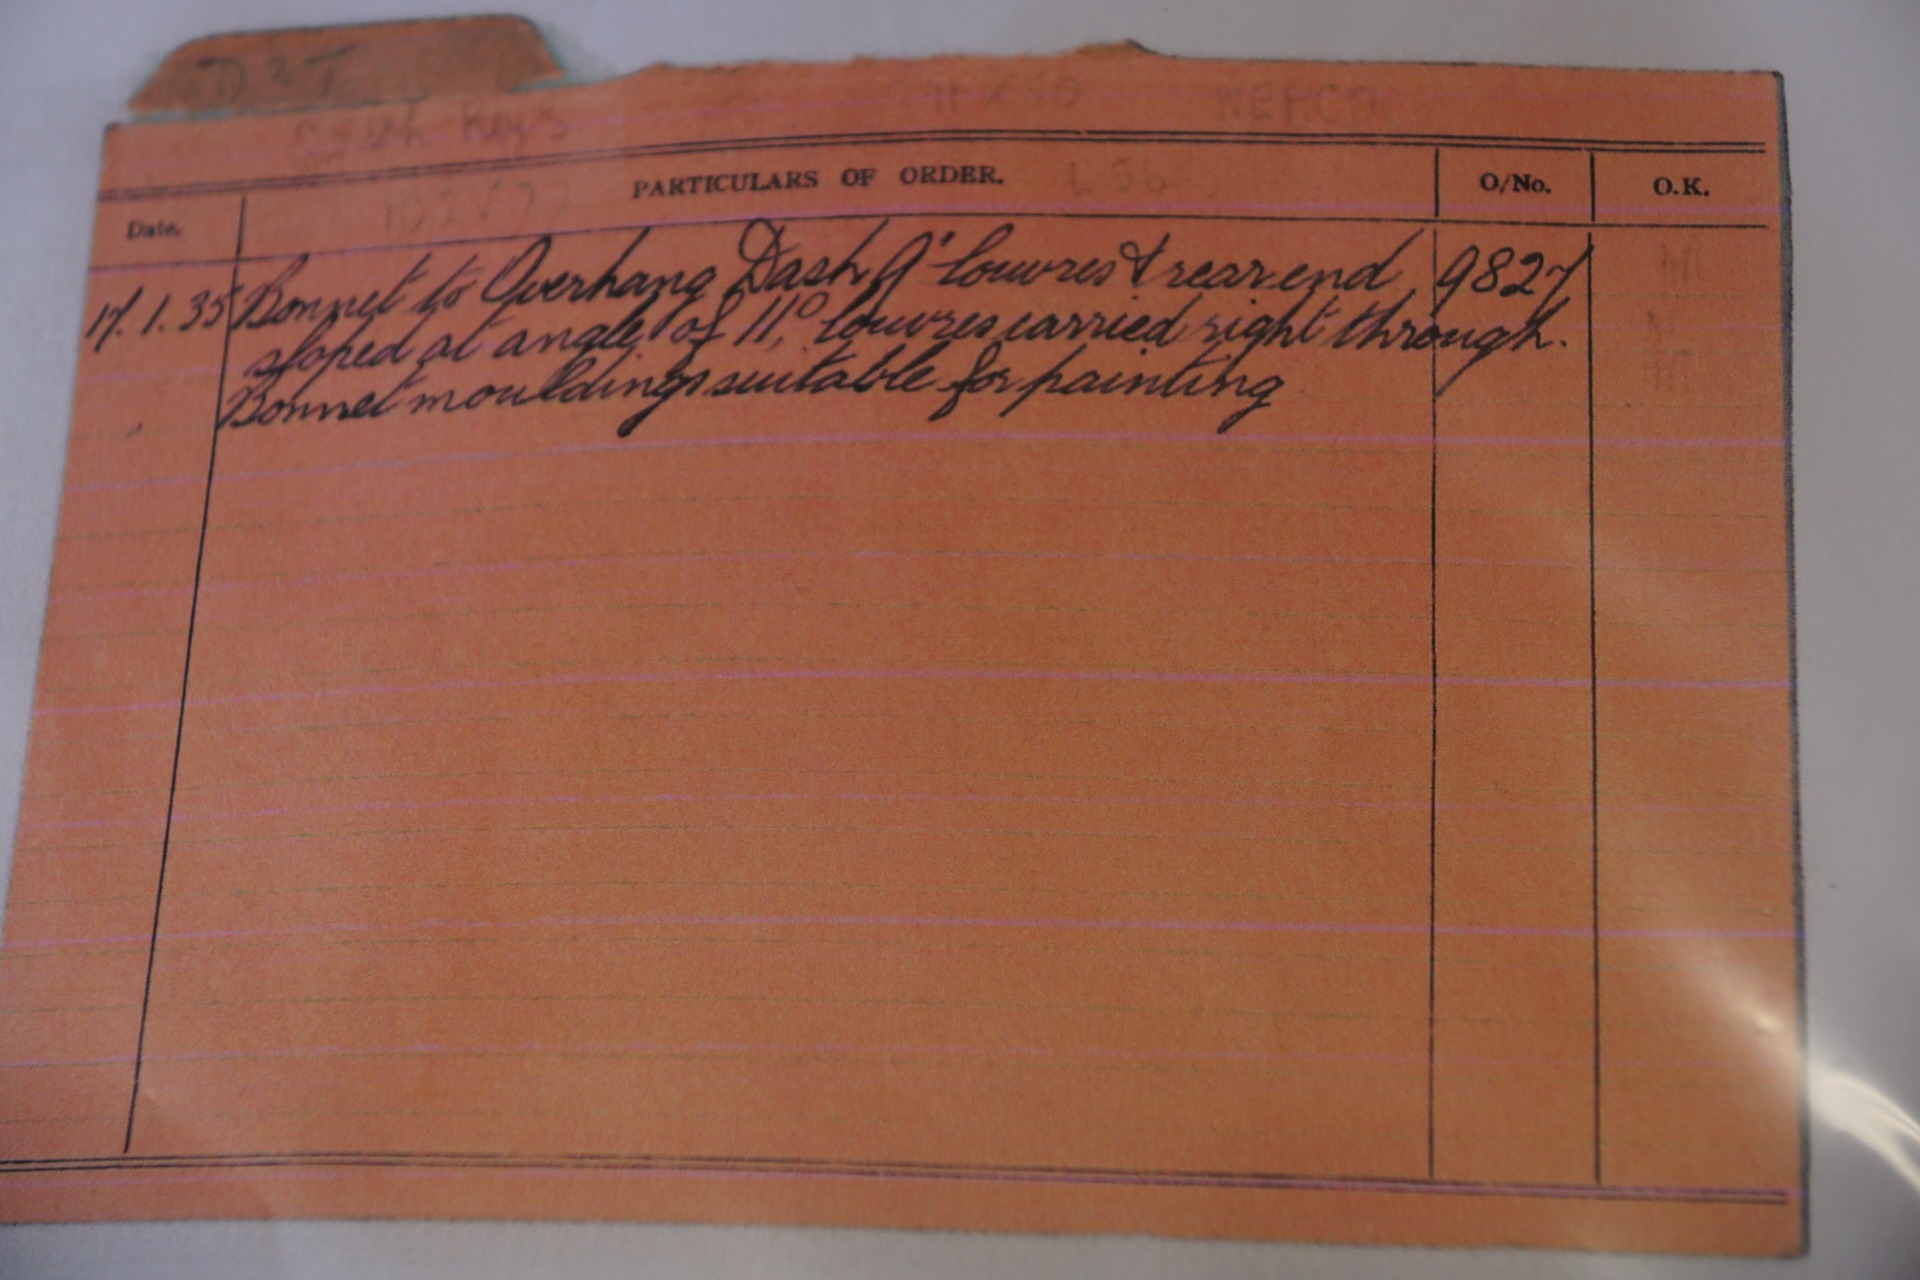 D3T
Keys
PARTICULARS OF ORDER.
O/No.
O.K.
Date.
17.1.35 Bonnet to Overhang Dash 9" louvres & rear end 9827
sloped at angle of 11°, louvres carried right through.
Bonnet mouldings suitable for painting